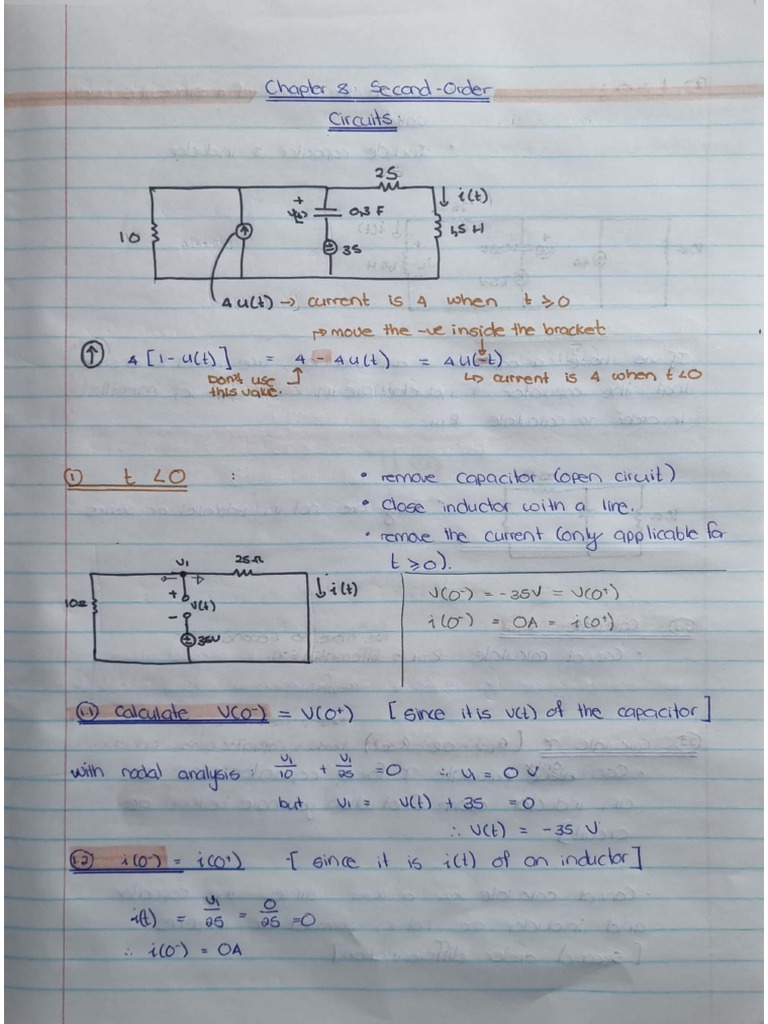 Chapter 8: Second-Order
Circuits
25
+
i(t)
V(t)
0,3 F
1,5 H
10
35
4u(t) → current is 4 when t ≥ 0
↱ move the -ve inside the bracket
4[1-u(t)] = 4 - 4u(t) = 4u(-t)
Don't use this value.
↳ current is 4 when t<0
① t <0 :
• remove capacitor (open circuit)
• close inductor with a line.
• remove the current (only applicable for
t ≥ 0).
V1
25Ω
i(t)
10Ω
+
V(t)
-
35V
V(0⁻) = -35V = V(0⁺)
i(0⁻) = 0A = i(0⁺)
1.1 Calculate V(0⁻) = V(0⁺) [since it is v(t) of the capacitor]
with nodal analysis V1/10 + V1/25 = 0 ∴ V1 = 0 V
but V1 = V(t) + 35 = 0
∴ V(t) = -35 V
1.2 i(0⁻) = i(0⁺) -[since it is i(t) of an inductor]
i(t) = V1/25 = 0/25 = 0
∴ i(0⁻) = 0A